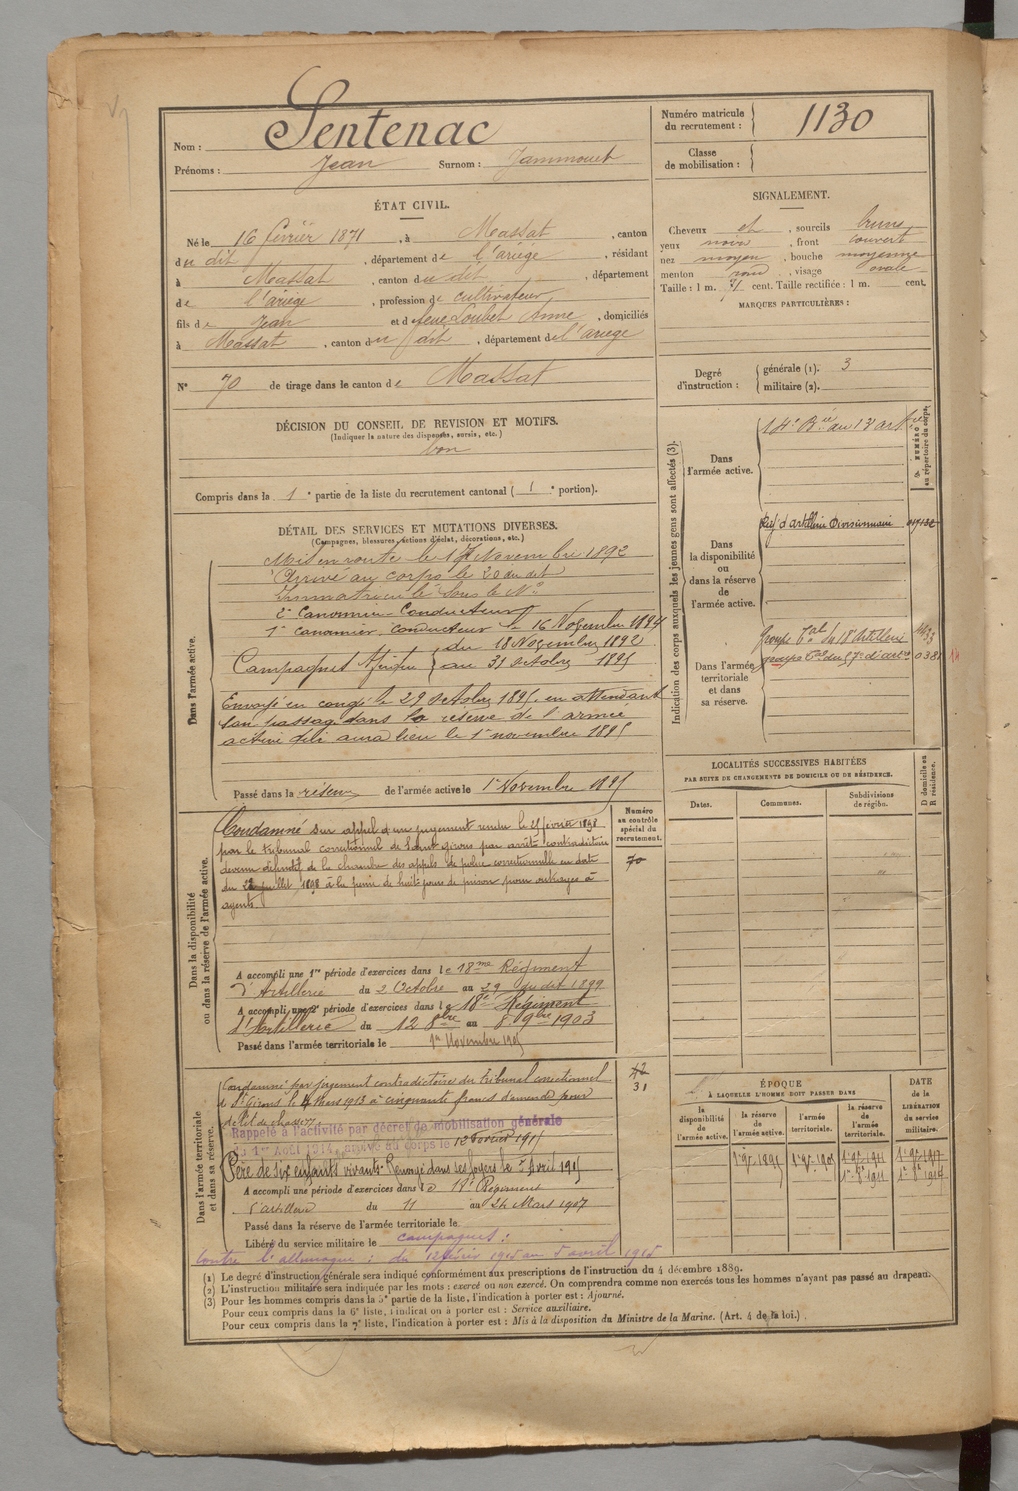 Nom : Sentenac
Prénoms : Jean Surnom : Jammouet
Numéro matricule du recrutement : 1130
Classe de mobilisation :
ÉTAT CIVIL.
Né le 16 février 1871, à Massat, canton
du dit, département de l'ariège, résidant
à Massat, canton du dit, département
de l'ariège, profession de cultivateur,
fils de Jean et de feue Loubet Anne, domiciliés
à Massat, canton du dit, département de l'ariège
N° 70 de tirage dans le canton de Massat
SIGNALEMENT.
Cheveux et, sourcils bruns
yeux noirs, front couvert
nez moyen, bouche moyenne
menton rond, visage ovale
Taille : 1 m. 71 cent. Taille rectifiée : 1 m. cent.
MARQUES PARTICULIÈRES :
Degré d'instruction : générale (1). 3
militaire (2).
DÉCISION DU CONSEIL DE REVISION ET MOTIFS.
(Indiquer la nature des dispenses, sursis, etc.)
bon
Compris dans la 1e partie de la liste du recrutement cantonal ( 1e portion).
DÉTAIL DES SERVICES ET MUTATIONS DIVERSES.
(Campagnes, blessures, actions d'éclat, décorations, etc.)
Dans l'armée active.
Mis en route le 17 Novembre 1892
Arrivé au corps le 20 du dit
Immatriculé sous le N°
2e Canonnier Conducteur
1er canonnier conducteur le 16 Novembre 1894
Campagnes Afrique du 18 Novembre 1892
au 31 octobre 1895
Envoyé en congé le 29 octobre 1895, en attendant
son passage dans la réserve de l'armée
active qui aura lieu le 1er novembre 1895
Passé dans la réserve de l'armée active le 1er Novembre 1895
Indication des corps auxquels les jeunes gens sont affectés (3).
NUMÉRO au répertoire du corps.
Dans l'armée active.
14e Bie au 13 artie
Dans la disponibilité ou dans la réserve de l'armée active.
d'artillerie Divisionnaire
Dans l'armée territoriale et dans sa réserve.
Groupe Tal du 18e Artillerie
groupe Tal du 57e d'artie 0381
LOCALITÉS SUCCESSIVES HABITÉES
PAR SUITE DE CHANGEMENTS DE DOMICILE OU DE RÉSIDENCE.
Dates. Communes. Subdivisions de région. D domicile ou R résidence.
Dans la disponibilité ou dans la réserve de l'armée active.
Numéro au contrôle spécial du recrutement.
70
Condamné sur appel d'un jugement rendu le février 1898
par le tribunal correctionnel de Saint girons par arrêt contradictoire
devenu définitif de la chambre des appels de police correctionnelle en date
du juillet 1898 à la peine de huit jours de prison pour outrages à
agents.
A accompli une 1re période d'exercices dans le 18me Régiment
d'Artillerie du 2 Octobre au 29 du dit 1899
A accompli une 2e période d'exercices dans le 18e Régiment
d'Artillerie du 12 8bre au 8 9bre 1903
Passé dans l'armée territoriale le 1er Novembre 1905
Dans l'armée territoriale et dans sa réserve.
42
31
Condamné par jugement contradictoire du tribunal correctionnel
de St Girons le Mars 1913 à cinquante francs d'amende pour
délit de chasse
Rappelé à l'activité par décret de mobilisation générale
du 1er Août 1914, arrivé au corps le 12 Février 1915
Père de six enfants vivants. Renvoyé dans ses foyers le 5 Avril 1915
A accompli une période d'exercices dans le 18e Régiment
d'artillerie du 11 au 24 Mars 1907
Passé dans la réserve de l'armée territoriale le
Libéré du service militaire le
campagnes :
contre l'allemagne : du 12 février 1915 au 5 avril 1915
ÉPOQUE
À LAQUELLE L'HOMME DOIT PASSER DANS
DATE de la LIBÉRATION du service militaire.
la disponibilité de l'armée active. la réserve de l'armée active. l'armée territoriale. la réserve de l'armée territoriale.
1er 9bre 1895 1er 9bre 1905 1er 9bre 1911 1er 9bre 1917
(1) Le degré d'instruction générale sera indiqué conformément aux prescriptions de l'instruction du 4 décembre 1889.
(2) L'instruction militaire sera indiquée par les mots : exercé ou non exercé. On comprendra comme non exercés tous les hommes n'ayant pas passé au drapeau.
(3) Pour les hommes compris dans la 5e partie de la liste, l'indication à porter est : Ajourné.
Pour ceux compris dans la 6e liste, l'indication à porter est : Service auxiliaire.
Pour ceux compris dans la 7e liste, l'indication à porter est : Mis à la disposition du Ministre de la Marine. (Art. 4 de la loi.)